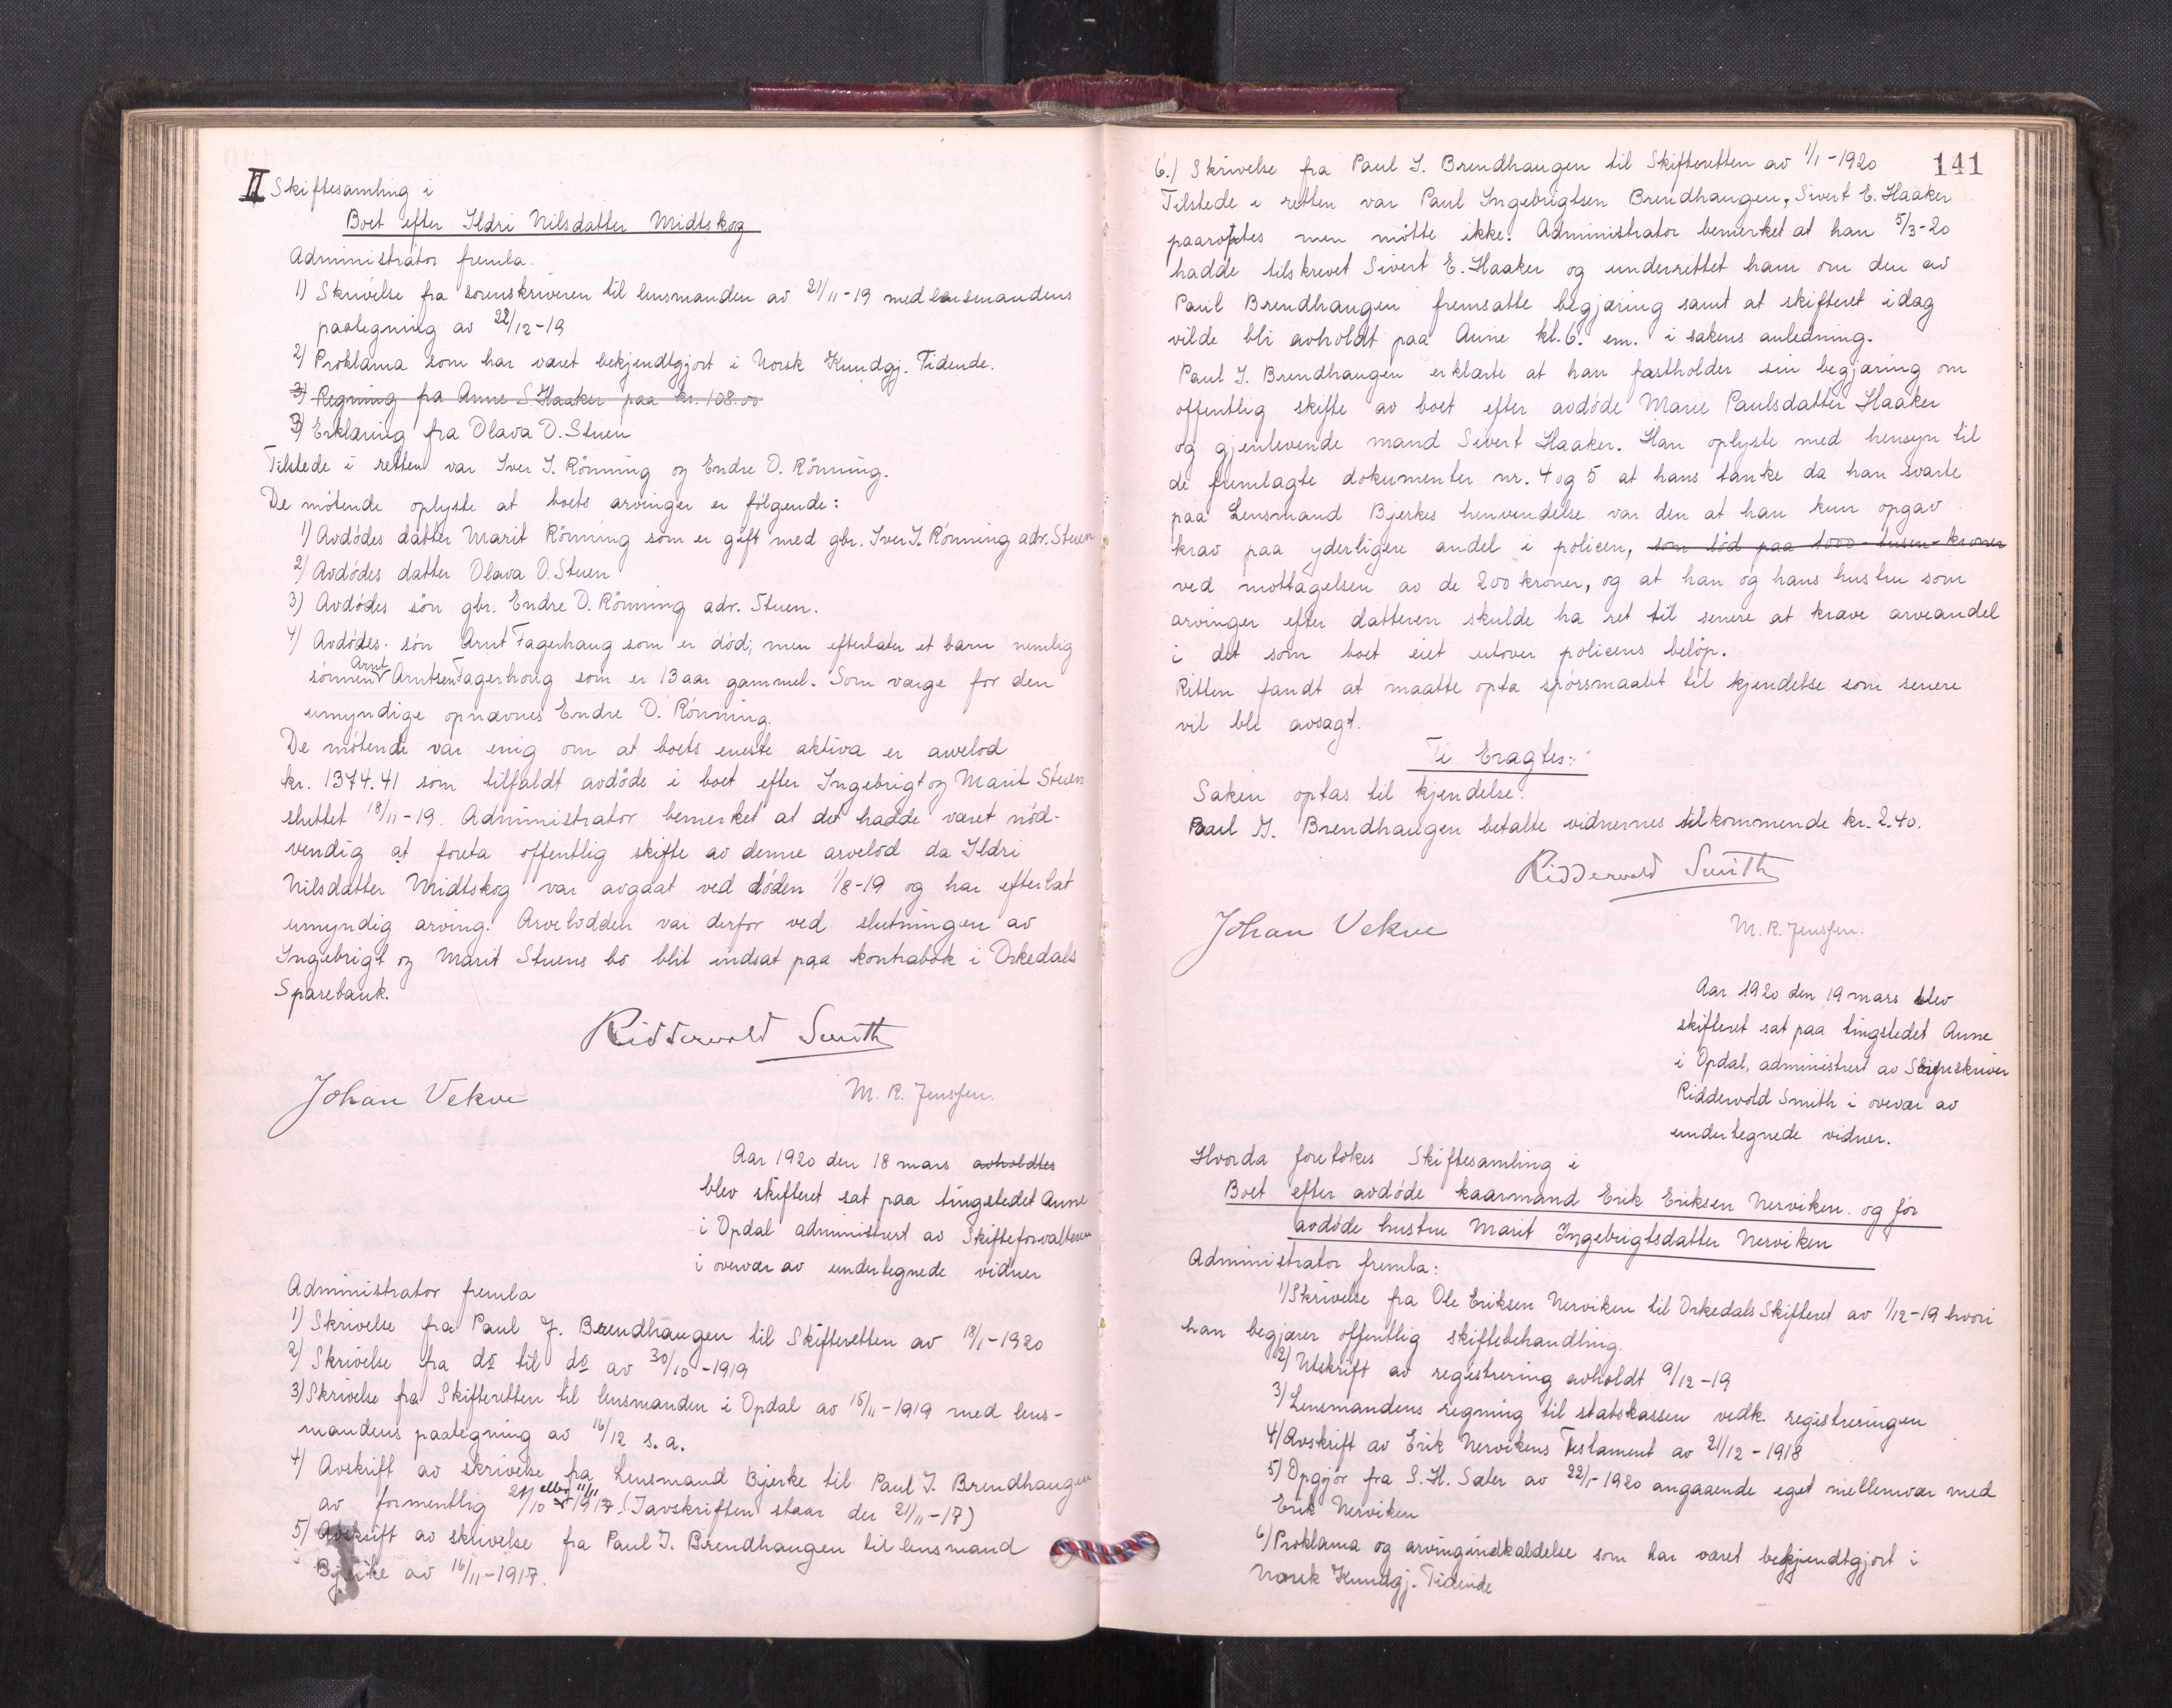 II Skiftesamling i
Boet efter Ildri Nilsdatter Midtskog
Administrator fremla.
1) Skrivelse fra sorenskriveren til lensmanden av 21/11-19 med lensmandens
paategning av 22/12-19
2) Proklama som har været bekjendtgjort i Norsk Kundgj. Tidende.
3) Regning fra Anne S. Haaker paa kr. 108.00
3) Erklæring fra Olava O. Stuen
Tilstede i retten var Iver I. Rönning og Endre O. Rönning.
De mötende oplyste at boets arvinger er fölgende:
1) Avdödes datter Marit Rönning som er gift med gbr. Iver I. Rönning adr. Stuen
2) Avdödes datter Olava O. Stuen
3) Avdödes sön gbr. Endre O. Rönning adr. Stuen.
4) Avdödes sön Arnt Fagerhaug som er död; men efterlater et barn nemlig
sönnen Arnt Arntsen Fagerhoug som er 13 aar gammel. Som værge for den
umyndige opnævnes Endre O. Rönning.
De mötende var enig om at boets eneste aktiva er arvelod
kr. 1374.41 som tilfaldt avdöde i boet efter Ingebrigt og Marit Stuen
sluttet 18/11-19. Administrator bemerket at det hadde været nöd-
vendig at foreta offentlig skifte av denne arvelod da Ildri
Nilsdatter Midtskog var avgaat ved döden 1/8-19 og har efterlat
umyndig arving. Arvelodden var derfor ved slutningen av
Ingebrigt og Marit Stuens bo blit indsat paa kontrabok i Orkedals
Sparebank.
Ridderwold Smith
Johan Vekve M. R. Jenssen.
Aar 1920 den 18 mars avholdtes
blev skifteret sat paa tingstedet Aune
i Opdal administrert av Skifteforvalteren
i overvær av undertegnede vidner
Administrator fremla
1) Skrivelse fra Paul J. Brendhaugen til Skifteretten av 18/1-1920
2) Skrivelse fra do til do av 30/10-1919
3) Skrivelse fra Skifteretten til lensmanden i Opdal av 15/11-1919 med lens-
mandens paategning av 16/12 s.a.
4) Avskrift av skrivelse fra Lensmand Bjerke til Paul I. Brendhaugen
av formentlig 21/10 eller 11/11 1917. (I avskriften staar der 21/11-17)
5) Avskrift av skrivelse fra Paul I. Brendhaugen til lensmand
Bjerke av 16/11-1917.
141
6.) Skrivelse fra Paul I. Brendhaugen til Skifteretten av 1/1-1920
Tilstede i retten var Paul Ingebrigtsen Brendhaugen, Sivert E. Haaker
paaroptes men mötte ikke. Administrator bemerket at han 5/3-20
hadde tilskrevet Sivert E. Haaker og underrettet ham om den av
Paul Brendhaugen fremsatte begjæring samt at skifteret idag
vilde bli avholdt paa Aune kl. 6. em. i sakens anledning.
Paul I. Brendhaugen erklærte at han fastholder sin begjæring om
offentlig skifte av boet efter avdöde Marie Paulsdatter Haaker
og gjenlevende mand Sivert Haaker. Han oplyste med hensyn til
de fremlagte dokumenter nr. 4 og 5 at hans tanke da han svarte
paa Lensmand Bjerkes henvendelse var den at han kun opgav
krav paa yderligere andel i policen, som löd paa 1000 tusen kroner
ved mottagelsen av de 200 kroner, og at han og hans hustru som
arvinger efter datteren skulde ha ret til senere at kræve arveandel
i det som boet eiet utover policens belöp.
Retten fandt at maatte opta spörsmaalet til kjendelse som senere
vil bli avsagt.
Ti Eragtes:
Saken optas til kjendelse.
Paul I. Brendhaugen betalte vidnernes tilkommende kr. 2.40.
Ridderwold Smith
Johan Vekve M. R. Jenssen.
Aar 1920 den 19 mars blev
skifteret sat paa tingstedet Aune
i Opdal, administrert av Sorenskriver
Ridderwold Smith i overvær av
undertegnede vidner.
Hvorda foretokes Skiftesamling i
Boet efter avdöde kaarmand Erik Eriksen Nerviken og før
avdöde hustru Marit Ingebrigtsdatter Nerviken
Administrator fremla:
1) Skrivelse fra Ole Eriksen Nerviken til Orkedals Skifteret av 1/12-19 hvori
han begjærer offentlig skiftebehandling.
2) Utskrift av registrering avholdt 9/12-19
3) Lensmandens regning til statskassen vedk. registreringen
4) Avskrift av Erik Nervikens Testament av 21/12-1918
5) Opgjör fra S. H. Sæter av 22/1-1920 angaaende eget mellemvær med
Erik Nerviken
6) Proklama og arvingindkaldelse som har været bekjendtgjort i
Norsk Kundgj. Tidende